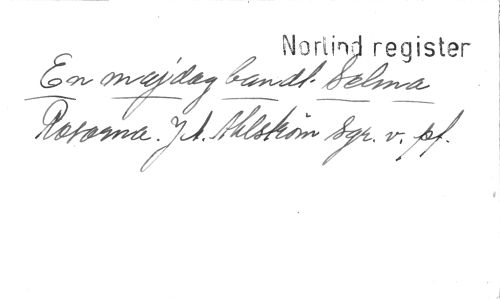 Nortind register
En majdag bandt Selma
Rosorna. J. A. Ahlström Sgr. v. pf.